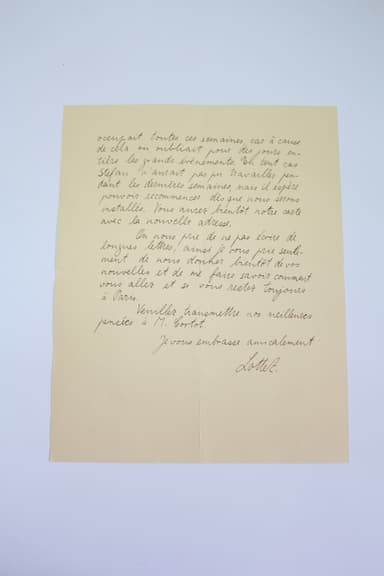 occupait toutes ces semaines, car à cause
de cela on oubliait pour des jours en-
tiers les grands événements. En tout cas
Stefan n'aurait pas pu travailler pen-
dant les dernières semaines, mais il espère
pouvoir recommencer dès que nous serons
installés. Vous aurez bientôt notre carte
avec la nouvelle adresse.
On nous prie de ne pas écrire de
longues lettres, ainsi je vous prie seule-
ment de nous donner bientôt de vos
nouvelles et de me faire savoir comment
vous allez et si vous restez toujours
à Paris.
Veuillez transmettre nos meilleures
pensées à M.
Je vous embrasse amicalement
Lotte Z.